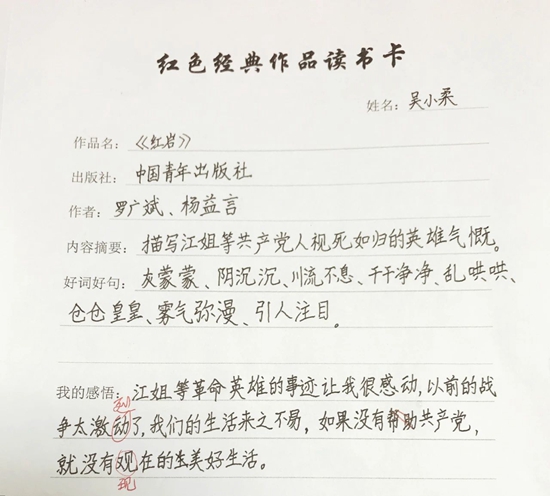 红色经典作品读书卡
姓名：吴小柔
作品名：《红岩》
出版社：中国青年出版社
作者：罗广斌、杨益言
内容摘要：描写江姐等共产党人视死如归的英雄气慨。
好词好句：灰蒙蒙、阴沉沉、川流不息、干干净净、乱哄哄、
仓仓皇皇、雾气弥漫、引人注目。
我的感悟：江姐等革命英雄的事迹让我很感动，以前的战
烈
争太激动了，我们的生活来之不易，如果没有帮助共产党，
就没有观在的生美好生活。
现